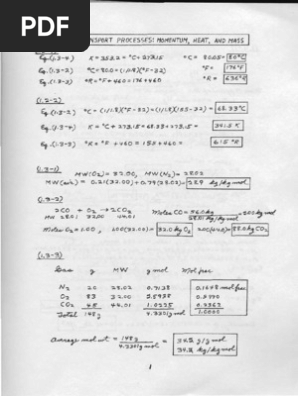 PDF
TRANSPORT PROCESSES: MOMENTUM, HEAT, AND MASS
Eq.(1.3-4) K=353.2=°C+273.15 °C=80.05= 80°C
Eq.(1.3-2) °C=80.0=(1/1.8)(°F-32) °F= 176°F
Eq.(1.3-3) °R=°F+460=176+460 °R= 636°R
(1.2-2)
Eq.(1.3-2) °C=(1/1.8)(°F-32)=(1/1.8)(155-32) = 68.33°C
Eq.(1.3-4) K=°C+273.15=68.33+273.15=
Eq.(1.3-3) °R=°F+460=155+460= 615°R
(1.3-1)
MW(O2)=32.00, MW(N2)=28.02
MW(air)=0.21(32.00)+0.79(28.02)= kg/kg mol
(1.3-2)
2CO + O2 → 2CO2
MW 28.01 32.00 44.01
Moles CO= =2.00 kg mol
Moles O2=1.00, 1.00(32.00)= 32.0 kg O2 2.00(44.0)= 88.0 kg CO2
(1.3-3)
Gas g MW g mol Mol frac
N2 20 28.02 0.7138 0.1648 mol frac
O2 83 32.00 2.5938
CO2 45 44.01 1.0225
Total 148g 1.0000
Average mol wt = 148g = 34.2 g/g mol
34.2 kg/kg mol
1